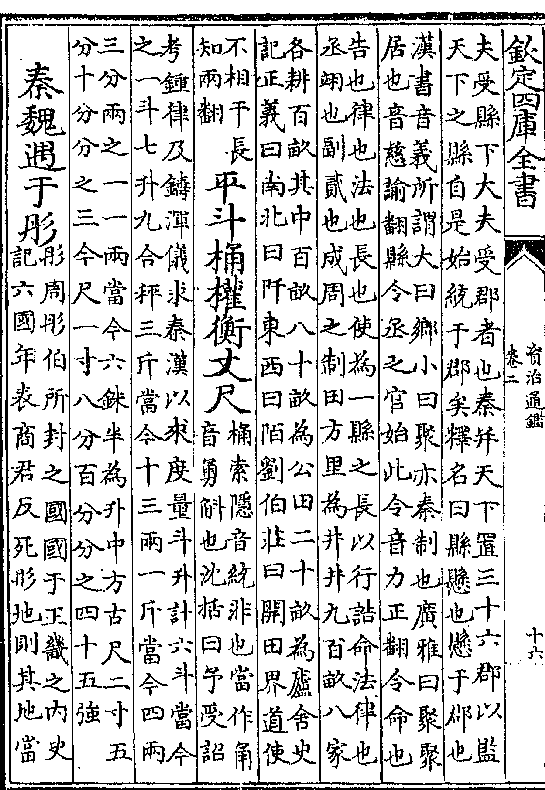 欽定四庫全書
資治通鑑
卷二
十六
夫受縣下大夫受郡者也秦幷天下置三十六郡以監
天下之縣自是始統于郡矣釋名曰縣懸也懸于郡也
漢書音義所謂大曰鄉小曰聚亦秦制也廣雅曰聚聚
居也音慈諭翻縣令丞之官始此令音力正翻令命也
告也律也法也長也使為一縣之長以行誥命法律也
丞翊也副貳也成周之制田方里為井井九百畝八家
各耕百畝其中百畝八十畝為公田二十畝為廬舍史
記正義曰南北曰阡東西曰陌劉伯莊曰開田界道使
不相干長
知兩翻
平斗桶權衡丈尺
桶索隱音統非也當作角
音勇斛也沈括曰予受詔
考鍾律及鑄渾儀求秦漢以來度量斗升計六斗當今
之一斗七升九合秤三斤當今十三兩一斤當今四兩
三分兩之一一兩當今六銖半為升中方古尺二寸五
分十分分之三今尺一寸八分百分分之四十五強
秦魏遇于彤
彤周彤伯所封之國國于王畿之內史
記六國年表商君反死彤地則其地當